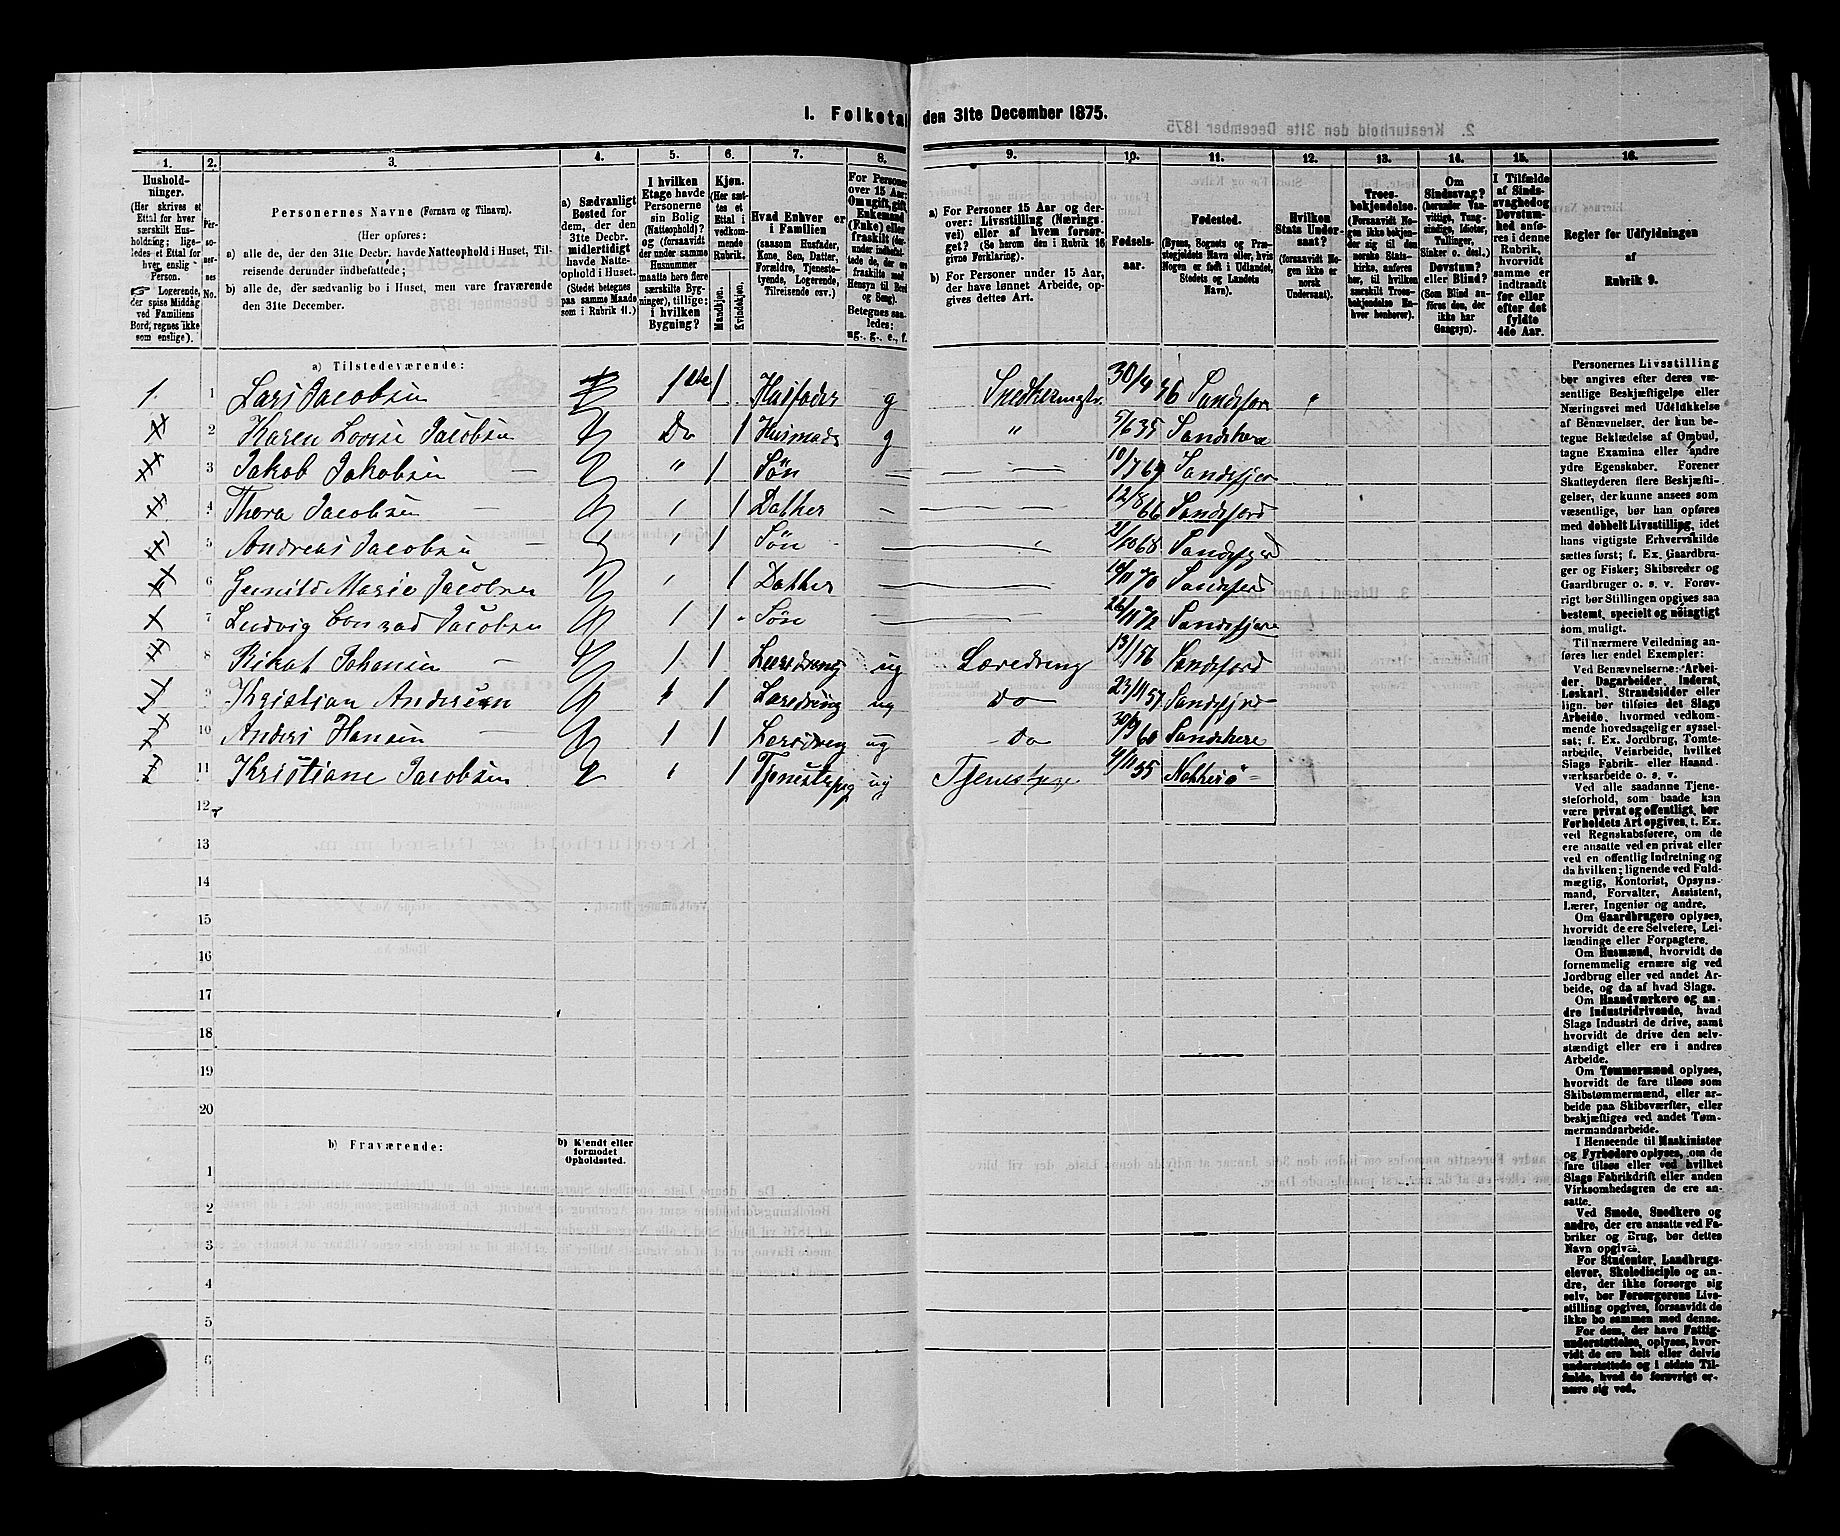 I. Folketal den 31te December 1875.
1. 2. 3. 4. 5. 6. 7. 8. 9. 10. 11. 12. 13. 14. 15. 16.
Hushold-
ninger.
(Her skrives et
Ettal for hver
særskilt Hus-
holdning; lige-
ledes et Ettal for
hver enslig
Person.
☞ Logerende,
der spise Middag
ved Familiens
Bord, regnes ikke
som enslige).
Per-
so-
ner-
nes
No.
Personernes Navne (Fornavn og Tilnavn).
(Her opføres:
a) alle de, der den 31te Decbr. havde Natteophold i Huset, Til-
reisende derunder indbefattede;
b) alle de, der sædvanlig bo i Huset, men vare fraværende
den 31te December.
a) Sædvanligt
Bosted for
dem, der den
31te Decbr.
midlertidigt
havde Natte-
ophold i Huset.
(Stedet betegnes
paa samme Maade
som i Rubrik 11.)
I hvilken
Etage havde
Personerne
sin Bolig
(Natteophold)?
og (forsaavidt
der under samme
Husnummer
maatte høre flere
særskilte Byg-
ninger), tillige:
i hvilken
Bygning?
Kjøn.
(Her sæt-
tes et
Ettal i
vedkom-
mende
Rubrik.
Mandkjøn.
Kvindekjøn.
Hvad Enhver er
i Familien
(saasom Husfader,
Kone, Søn, Datter,
Forældre, Tjeneste-
tyende, Logerende,
Tilreisende osv.)
For Personer
over 15 Aar:
Om ugift, gift,
Enkemand
(Enke) eller
fraskilt (der-
under indbefat-
tede de, der ere
fraskilte med
Hensyn til Bord
og Seng).
Betegnes saa-
ledes:
ug., g., e., f.
a) For Personer 15 Aar og der-
over: Livsstilling (Nærings-
vei) eller af hvem forsør-
get? (Se herom den i Rubrik 16
givne Forklaring).
b) For Personer under 15 Aar,
der have lønnet Arbeide, op-
gives dettes Art.
Fødsels-
aar.
Fødested.
(Byens, Sognets og Præ-
stegjeldets Navn eller, hvis
Nogen er født i Udlandet,
Stedets og Landets
Navn).
Hvilken
Stats Under-
saat?
(forsaavidt No-
gen ikke er
norsk
Undersaat).
Troes-
bekjendelse.
(Forsaavidt No-
gen ikke bekjen-
der sig til den
norske Stats-
kirke, anføres
her, til hvilken
særskilt Troes-
bekjendelse En-
hver henhører).
Om
Sindssvag?
(herunder Van-
vittige, Tung-
sindige, Idioter,
Tullinger,
Sinker o. desl.)
Døvstum?
eller Blind?
(Som Blind an-
føres den, der
ikke har
Gangsyn).
I Tilfælde
af Sinds-
svaghed og
Døvstum-
hed anfø-
res i denne
Rubrik,
hvorvidt
samme er
indtraadt
før eller
efter det
fyldte
4de Aar.
Regler for Udfyldningen
af
Rubrik 9.
a) Tilstedeværende:
1. 1 Lars Jacobsen 1ste 1 Husfader g Snedkermstr. 30/4 36 Sandefjor
2 Karen Lovise Jacobsen Do 1 Husmoder g " 5/6 35 Sandehere
3 Jakob Jakobsen — " 1 Søn — 10/7 64 Sandefjor
4 Thora Jacobsen — 1 Datter — 12/8 66 Sandefjord
5 Andreas Jacobsen — 1 Søn 21/10 68 Sandefjord
6 Marie Jacobsen 1 Datter 70 Sandefjord
7 Ludvig Conrad Jacobsen 1 1 Søn 26/11 72 Sandefjord
8 Rikat Johansen — 1 1 Læredreng ug Læredreng 13/1 56 Sandefjord
9 Kristian Andersen 1 1 Læredreng ug do 23/11 57 Sandefjord
10 Anders Hansen — 1 1 Læredreng ug do 30/9 60 Sandehere
11 Kristiane Jacobsen 1 1 Tjenestepg ug Tjenestepige 4/11 55 Nøtterø
12
13
14
15
16
17
18
19
20
b) Fraværende:
b) Kjendt eller
formodet
Opholdssted.
1
2
3
4
5
6
Personernes Livsstilling
bør angives efter deres væ-
sentlige Beskjæftigelse eller
Næringsvei med Udelukkelse
af Benævnelser, der kun be-
tegne Beklædelse af Ombud,
tagne Examina eller andre
ydre Egenskaber. Forener
Skatteyderen flere Beskjæfti-
gelser, der kunne ansees som
væsentlige, bør han opføres
med dobbelt Livsstilling, idet
hans vigtigste Erhvervskilde
sættes først; f. Ex. Gaardbru-
ger og Fisker; Skibsreder og
Gaardbruger o. s. v. Forøv-
rigt bør Stillingen opgives saa
bestemt, specielt og nøiagtigt
som muligt.
Til nærmere Veiledning an-
føres her endel Exempler:
Ved Benævnelserne: Arbei-
der, Dagarbeider, Inderst,
Løskarl, Strandsidder eller
lign. bør tilføies det Slags
Arbeide, hvormed vedkom-
mende hovedsagelig er syssel-
sat; f. Ex. Jordbrug, Tomte-
arbeide, Veiarbeide, hvilket
Slags Fabrik- eller Haand-
værksarbeide o. s. v.
Ved alle saadanne Tjene-
steforhold, som baade kan
være privat og offentligt, bør
Forholdets Art opgives, t. Ex.
ved Regnskabsførere, om de
ere ansatte ved en privat eller
ved en offentlig Indretning og
da hvilken; lignende ved Fuld-
mægtig, Kontorist, Opsyns-
mand, Forvalter, Assistent,
Lærer, Ingeniør og andre.
Om Gaardbrugere oplyses,
hvorvidt de ere Selveiere, Lei-
lændinge eller Forpagtere.
Om Husmænd, hvorvidt de
fornemmelig ernære sig ved
Jordbrug eller ved andet Ar-
beide, og da af hvad Slags.
Om Haandværkere og an-
dre Industridrivende, hvad
Slags Industri de drive, samt
hvorvidt de drive den selv-
stændigt eller ere i andres
Arbeide.
Om Tømmermænd oplyses,
hvorvidt de fare tilsøs som
Skibstømmermænd, eller ar-
beide paa Skibsværfter, eller
beskjæftiges ved andet Tøm-
mermandsarbeide.
I Henseende til Maskinister
og Fyrbødere oplyses, om de
fare tilsøs eller ved hvilket
Slags Fabrikdrift eller anden
Virksomhedsgren de ere an-
satte.
Ved Smede, Snedkere og
andre, der ere ansatte ved Fa-
briker og Brug, bør dettes
Navn opgives.
For Studenter, Landbrugs-
elever, Skoledisciple og an-
dre, der ikke forsørge sig
selv, bør Forsørgerens Livs-
stilling opgives, forsaavidt de
ikke bo sammen med denne.
For dem, der have Fattig-
understøttelse, oplyses, hvor-
vidt de ere helt eller delvis
understøttede og i sidste Til-
fælde, hvad de forøvrigt er-
nære sig ved.